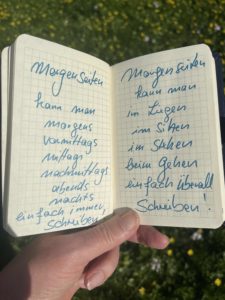 Morgenseiten
kann man
morgens
vormittags
mittags
nachmittags
abends
nachts
einfach immer
schreiben!
Morgenseiten
kann man
im Liegen
im Sitzen
im Stehen
beim Gehen
einfach überall
Schreiben!